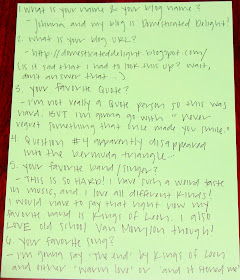 1. what is your name & blog name?
- Johnna and my blog is Domesticated Delight!
2. what is your blog URL?
- http://domesticateddelight.blogspot.com/
(is it sad that i had to look this up? wait,
don't answer that...)
3. your favorite Quote?
- i'm not really a Quote person so this was
hard. BUT i'm gonna go with "never
regret something that once made you smile."
4. Question #4 apparently disappeared
into the bermuda triangle...
5. your favorite band/singer?
- This is SO HARD! i have such a weird taste
in music, and i love all different kinds!
i would have to say that right now my
favorite band is Kings of Leon. i also
LOVE old school Van Morrison though!
6. your favorite song?
- i'm gonna say "the end" by Kings of Leon
and either "warm love" or "and it stoned me"